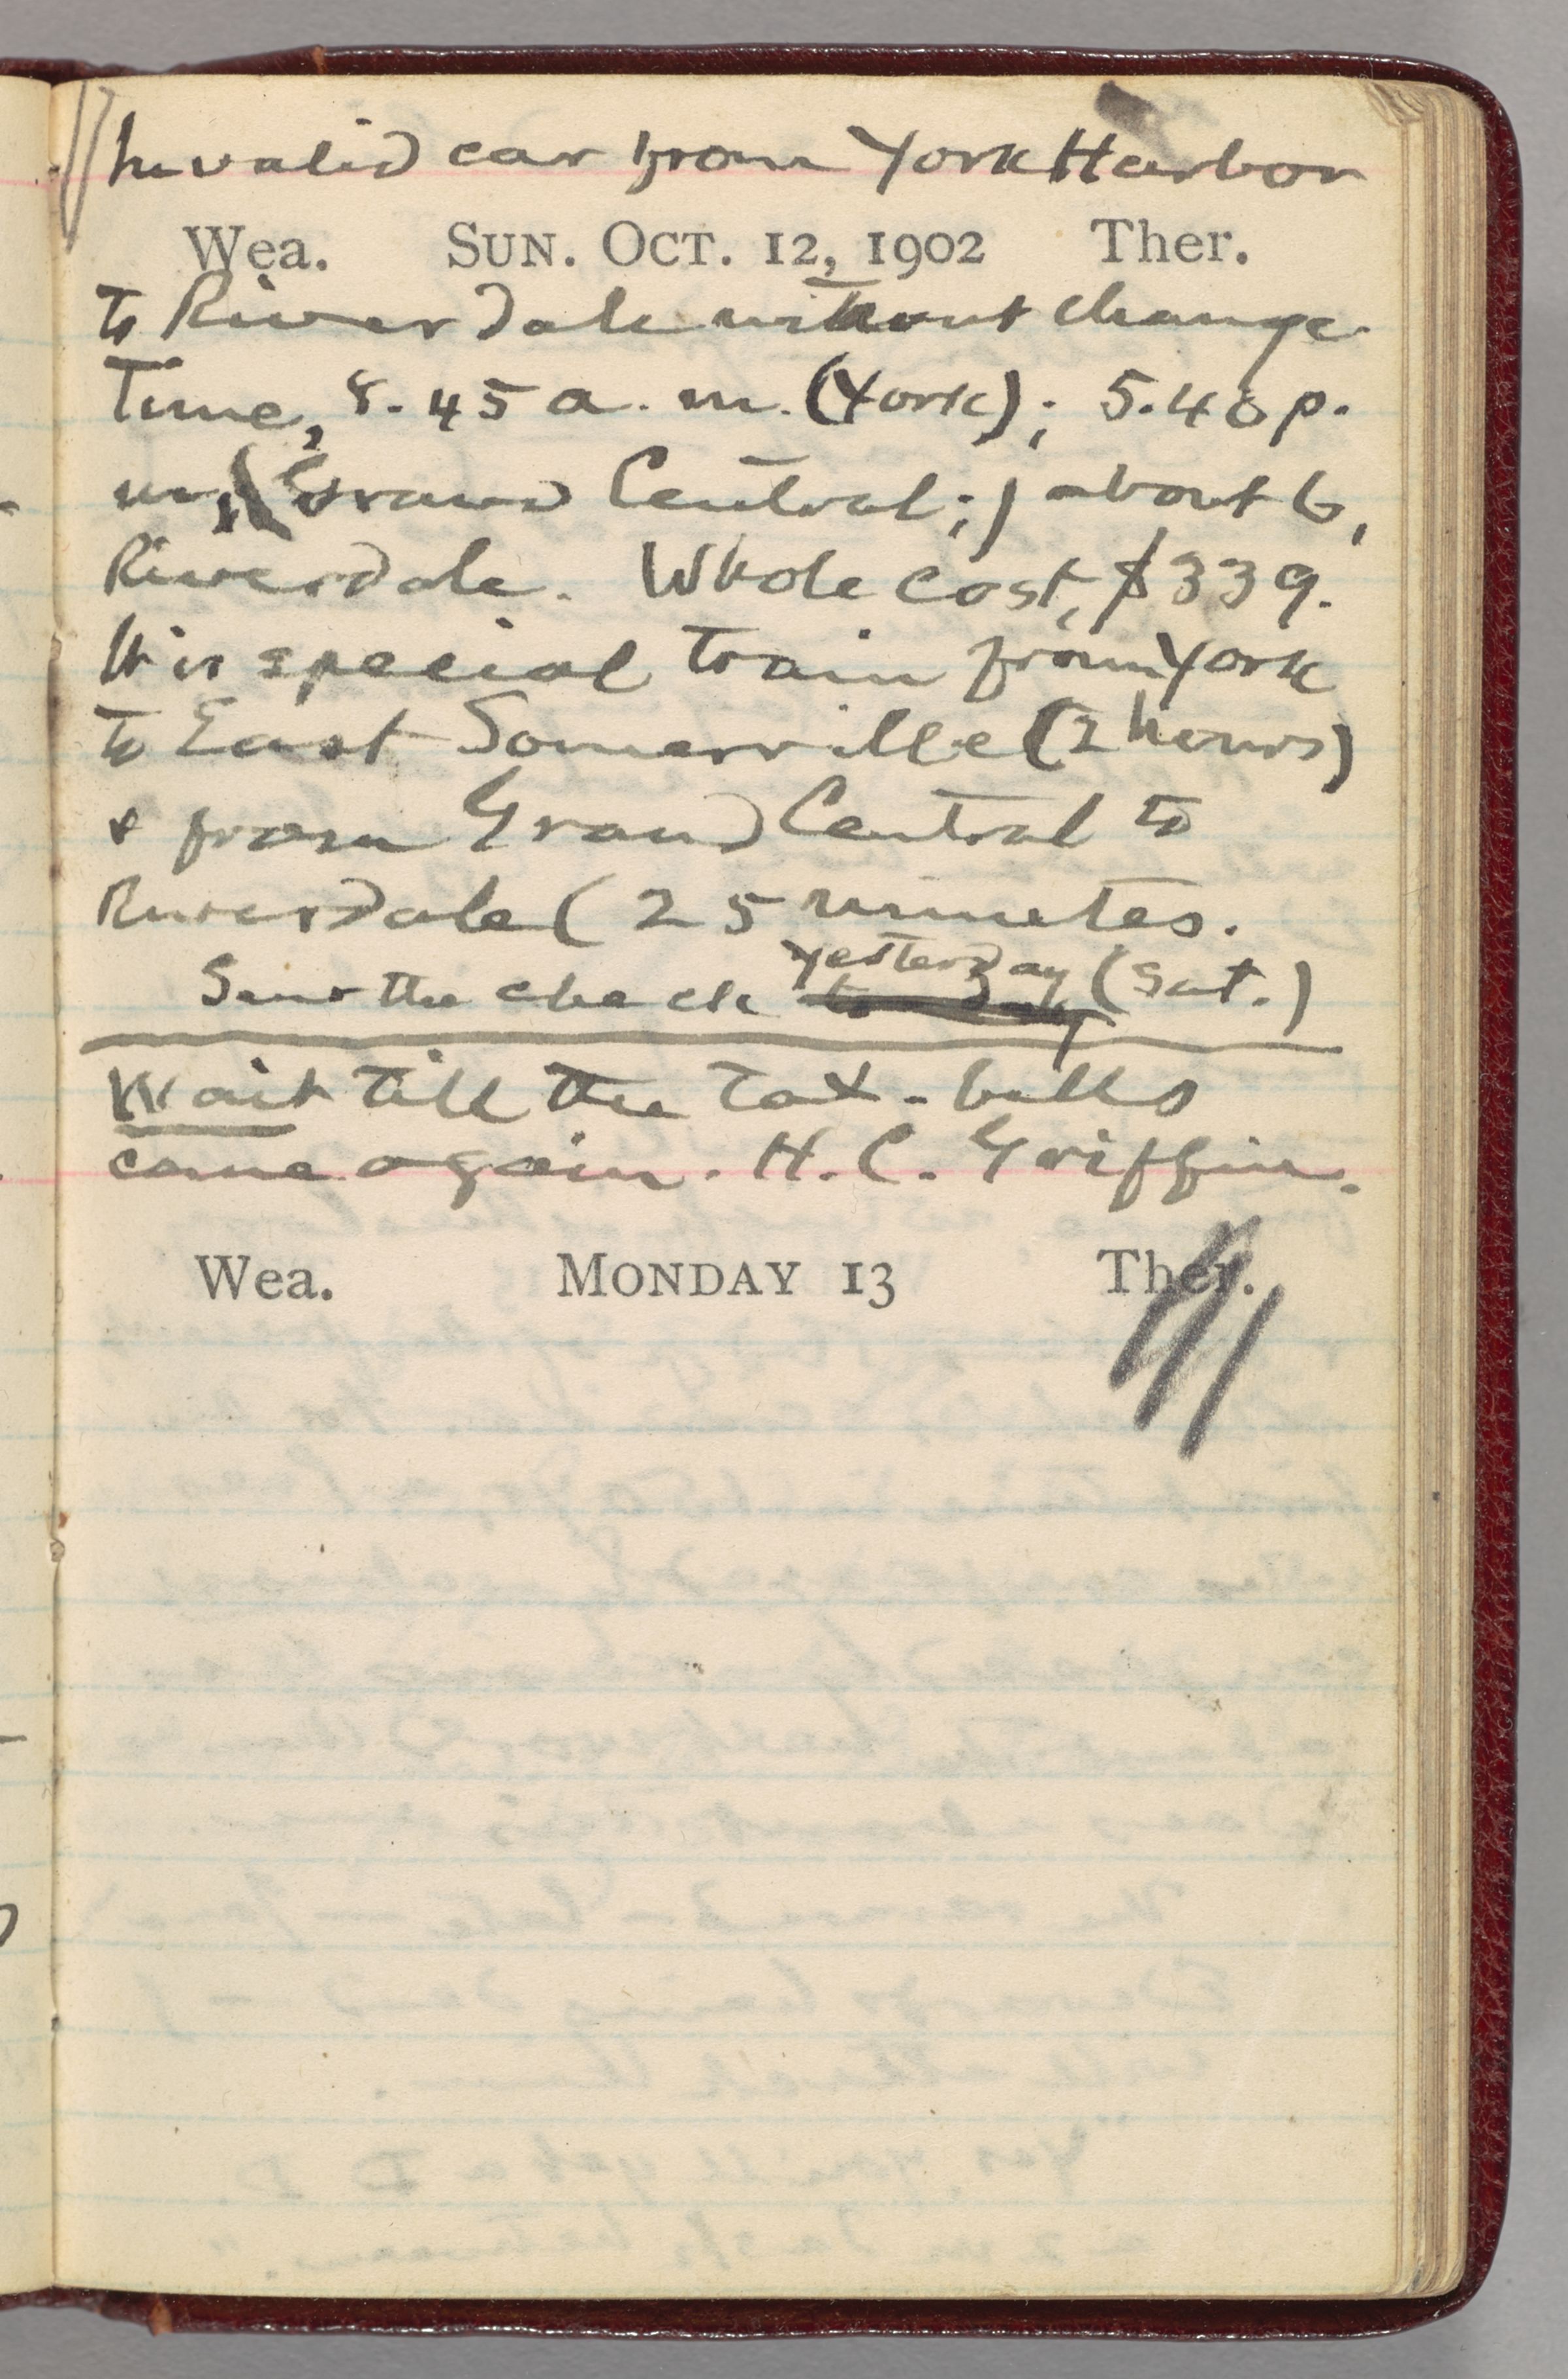 Invalid car from York Harbor
Wea. SUN. OCT. 12, 1902 Ther.
to Riverdale without change
Time, 8.45 a. m. (York); 5.40 p.
m, (Grand Central;) about 6,
Riverdale. Whole cost, $339.
It is special train from York
to East Somerville (2 hours)
& from Grand Central to
Riverdale (25 minutes.
yesterday (Sat.)
Sent the check to-day
Wait till the tax-bills
come again. H. C. Griffin.
Wea. MONDAY 13 Ther.